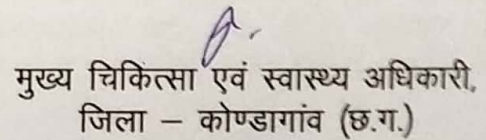 मुख्य चिकित्सा एवं स्वास्थ्य अधिकारी,
जिला – कोण्डागांव (छ.ग.)